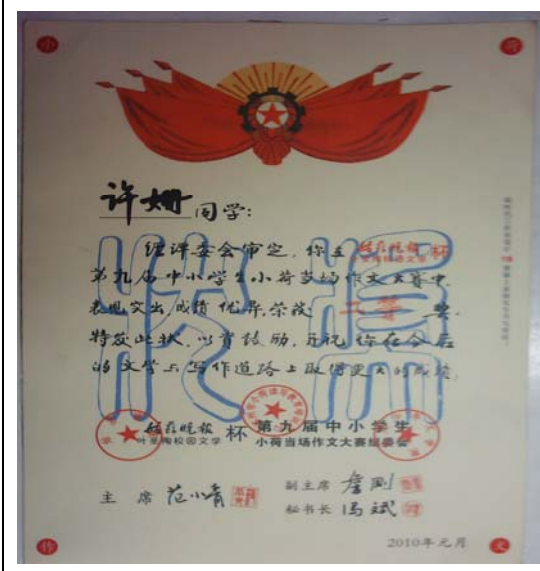 小
荷
许姗同学:
经评委会审定，你在姑苏晚报杯
第九届中小学生小荷当场作文大赛中
表现突出成绩优异,荣获二等奖.
特发此状,以资鼓励,并祝你在今后
的文学与写作道路上取得更大的成绩,
姑苏晚报
叶圣陶校园文学
杯
第九届中小学生
小荷当场作文大赛组委会
主席 范小青
副主席 詹刚
秘书长 冯斌
2010年元月
作
文